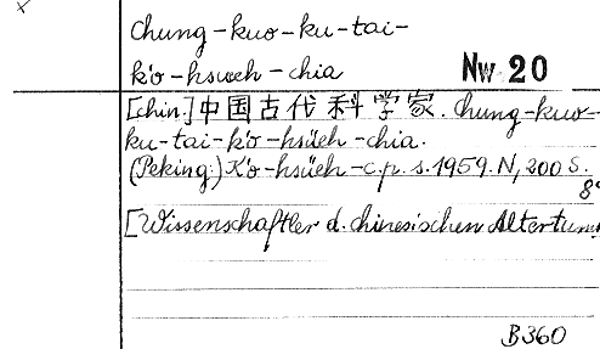 Chung-kuo-ku-tai-
k'o-hsueh-chia
Nw 20
[chin.] 中国古代科学家. Chung-kuo-
ku-tai-k'o-hsüeh-chia.
(Peking:) K'o-hsüeh-c.p.s. 1959. N, 200 S.
8°
[Wissenschaftler d. chinesischen Altertums
B360